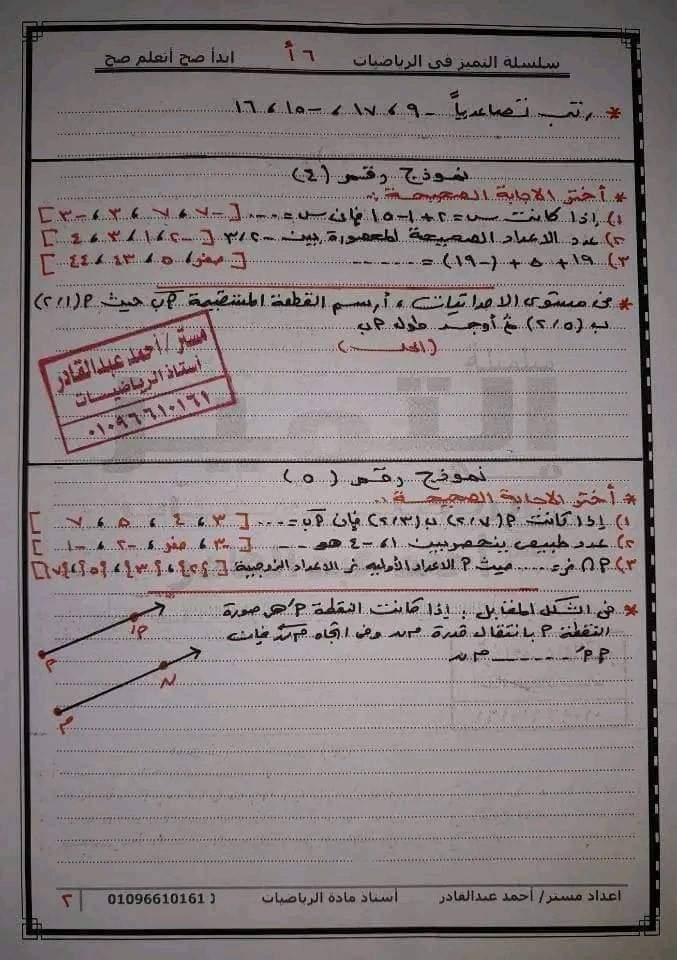 سلسلة التميز في الرياضيات ٦ أ ابدأ صح أتعلم صح
* رتب تصاعدياً -٩ ، ١٧ ، -١٥ ، ١٦
نموذج رقم (٤)
* أختر الإجابة الصحيحة :
١) إذا كانت س = ٢ + |-٥| فإن س = .... [ -٧ ، ٧ ، ٣ ، -٣ ]
٢) عدد الاعداد الصحيحة المحصورة بين -٣/٢ [ -٢ ، ١ ، ٣ ، ٤ ]
٣) ١٩ + ٥ + (-١٩) = ...... [ صفر ، ٥ ، ٤٣ ، ٤٤ ]
* في مستوى الإحداثيات ، أرسم القطعة المستقيمة أب حيث أ (٢/١)
ب (٢/٥) ثم أوجد طول أب
(الحل)
مستر / أحمد عبدالقادر
أستاذ الرياضيات
٠١٠٩٦٦١٠١٦١
سلسلة
التميز
نموذج رقم (٥)
* أختر الإجابة الصحيحة :
١) إذا كانت أ (٢/٧) ب (٢/٣) فإن أب = .... [ ٣ ، ٤ ، ٥ ، ٧ ]
٢) عدد طبيعي ينحصر بين ١ ، -٤ هو .... [ -٣ ، صفر ، -٢ ، -١ ]
٣) أ ∩ ز = .... حيث أ الأعداد الأولية ز الأعداد الزوجية [ {٢} ، {٣} ، {٥} ، {٧} ]
* في الشكل المقابل : إذا كانت النقطة أَ هي صورة
النقطة أ بانتقال قدره م ن وفي اتجاه م ن فإن
أ أَ ...... م ن
أ
أَ
م
ن
اعداد مستر/ أحمد عبدالقادر أستاذ مادة الرياضيات ت 01096610161 ٢